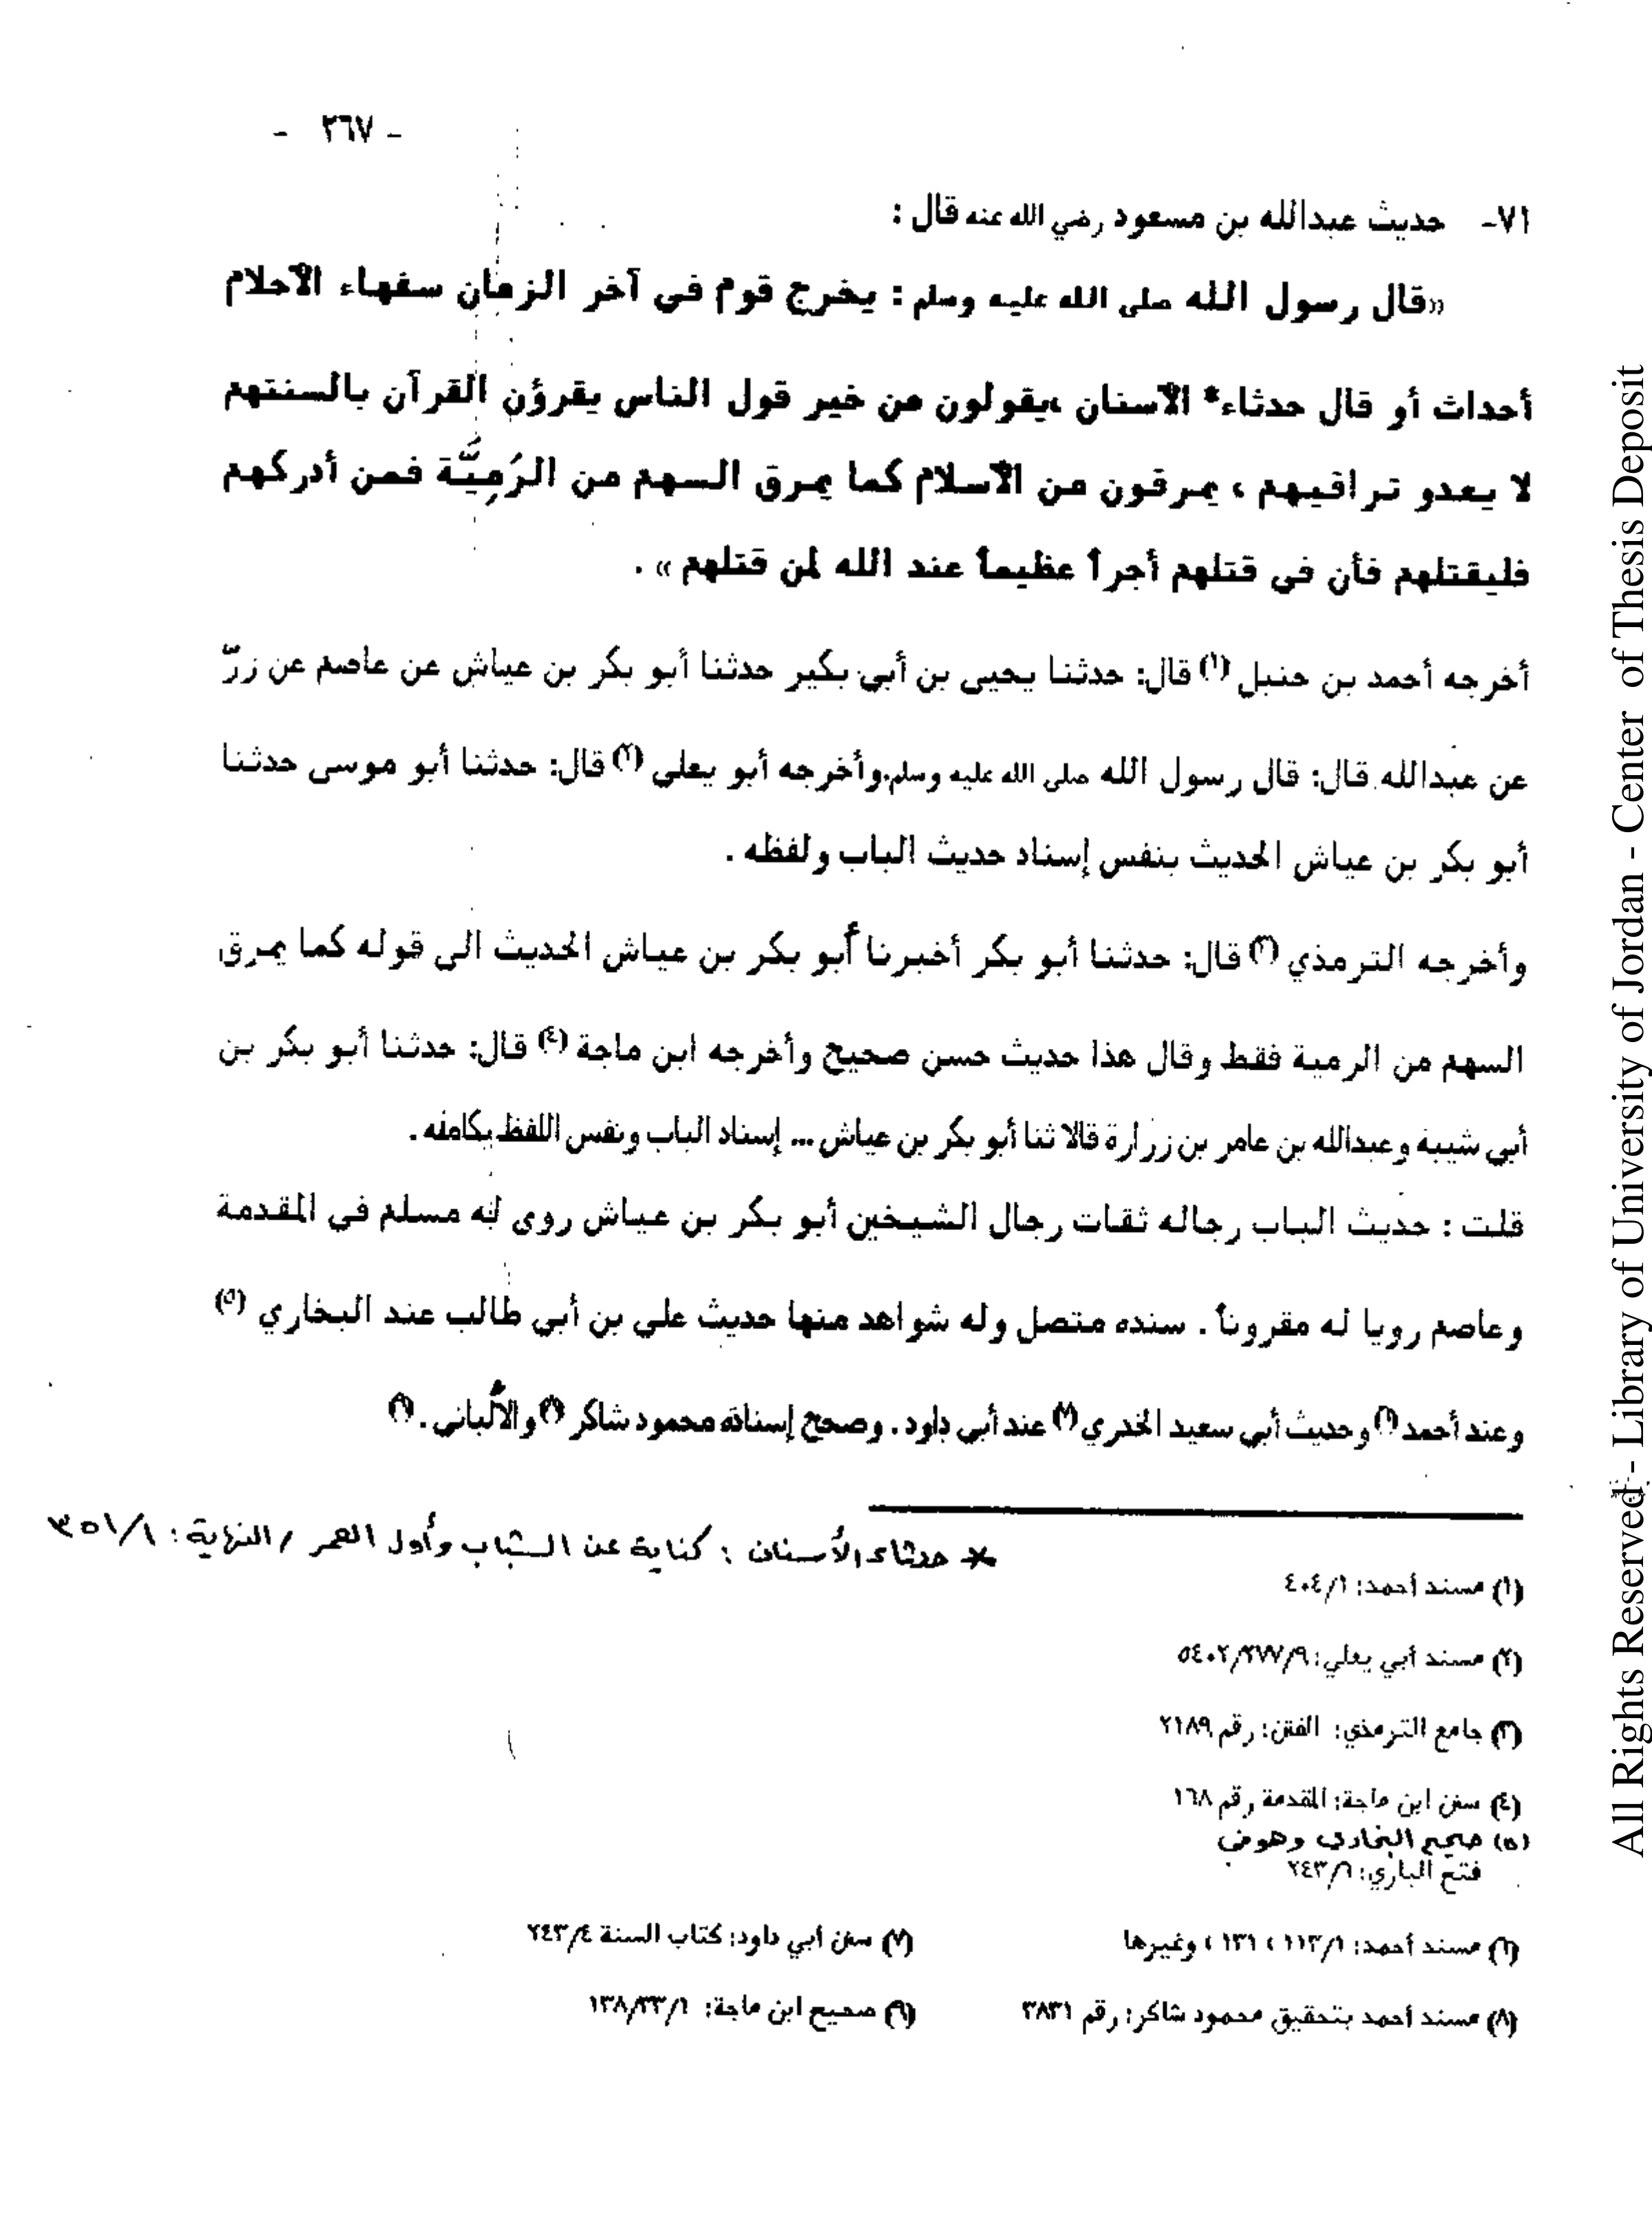 - ٣٦٧ -
٧١- حديث عبدالله بن مسعود رضي الله عنه قال :
«قال رسول الله صلى الله عليه وسلم : يخرج قوم في آخر الزمان سفهاء الأحلام
أحداث أو قال حدثاء* الأسنان ،يقولون من خير قول الناس يقرؤن القرآن بالسنتهم
لا يعدو تراقيهم ، يمرقون من الأسلام كما يمرق السهم من الرَمِيَّة فمن أدركهم
فليقتلهم فأن في قتلهم أجراً عظيماً عند الله لمن قتلهم » .
أخرجه أحمد بن حنبل (١) قال: حدثنا يحيى بن أبي بكير حدثنا أبو بكر بن عياش عن عاصم عن زرّ
عن عبدالله قال: قال رسول الله صلى الله عليه وسلم.وأخرجه أبو يعلى (٢) قال: حدثنا أبو موسى حدثنا
أبو بكر بن عياش الحديث بنفس إسناد حديث الباب ولفظه .
وأخرجه الترمذي (٣) قال: حدثنا أبو بكر أخبرنا أبو بكر بن عياش الحديث الى قوله كما يمرق
السهم من الرمية فقط وقال هذا حديث حسن صحيح وأخرجه ابن ماجة (٤) قال: حدثنا أبو بكر بن
أبي شيبة وعبدالله بن عامر بن زرارة قالا ثنا أبو بكر بن عياش ... إسناد الباب ونفس اللفظ بكامله .
قلت : حديث الباب رجاله ثقات رجال الشيخين أبو بكر بن عياش روى له مسلم في المقدمة
وعاصم رويا له مقروناً . سنده متصل وله شواهد منها حديث علي بن أبي طالب عند البخاري (٥)
وعند أحمد (٦) وحديث أبي سعيد الخدري (٧) عند أبي داود . وصحح إسناده محمود شاكر (٨) والألباني . (٩)
* حدثاء الأسنان : كناية عن الشباب وأول العمر / النهاية : ٣٥١/١
(١) مسند أحمد: ٤٠٤/١
(٢) مسند أبي يعلي: ٥٤٠٢/٢٧٧/٩
(٣) جامع الترمذي: الفتن: رقم ٢١٨٩
(٤) سنن ابن ماجة: المقدمة رقم ١٦٨
(٥) صحيح البخاري وهو في
فتح الباري: ٢٤٣/٦
(٦) مسند أحمد: ١١٣/١ ، ١٣١ ، وغيرها
(٧) سنن أبي داود: كتاب السنة ٢٤٣/٤
(٨) مسند أحمد بتحقيق محمود شاكر: رقم ٣٨٣١
(٩) صحيح ابن ماجة: ١٣٨/٣٣/١
All Rights Reserved - Library of University of Jordan - Center of Thesis Deposit